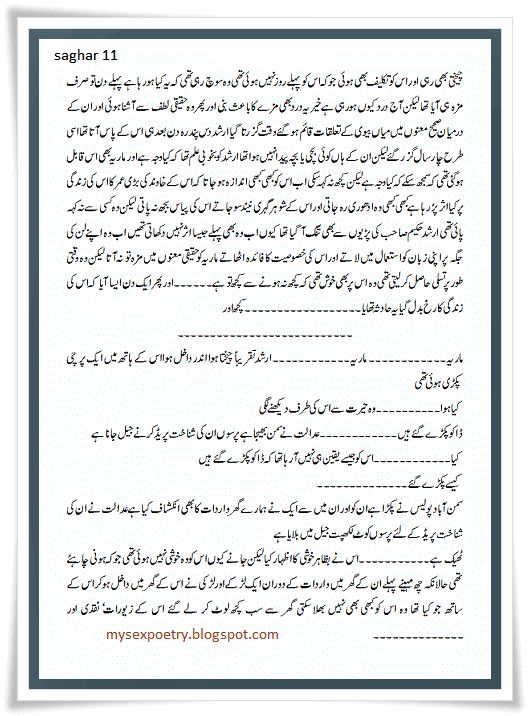 saghar 11
چیختی بھی رہی اور اس کو تکلیف بھی ہوئی جو کہ اس کو پہلے روز نہیں ہوئی تھی وہ سوچ رہی تھی کہ یہ کیا ہو رہا ہے پہلے دن تو صرف
مزہ ہی آیا تھا لیکن آج درد کیوں ہو رہی ہے خیر یہ درد بھی مزے کا باعث بنی اور پھر وہ حقیقی لطف سے آشنا ہوئی اور ان کے
درمیان صحیح معنوں میں میاں بیوی کے تعلقات قائم ہو گئے وقت گزرتا گیا ارشد دس پندرہ دن بعد ہی اس کے پاس آتا تھا اسی
طرح چار سال گزر گئے لیکن ان کے ہاں کوئی بچی یا بچہ پیدا نہیں ہوا تھا ارشد کو بخوبی علم تھا کہ کیا وجہ ہے اور ماریہ بھی اس قابل
ہو گئی تھی کہ سمجھ سکے کہ کیا وجہ ہے لیکن کچھ نہ کہہ سکی اب اس کو کبھی کبھی اندازہ ہو جاتا کہ اس کے خاوند کی بڑی عمر کا اس کی زندگی
پر کیا اثر پڑ رہا ہے کبھی کبھی وہ ادھوری رہ جاتی اور اس کے شوہر گہری نیند سو جاتے اس کی پیاس بجھ نہ پاتی لیکن وہ کسی سے نہ کہہ
پاتی تھی ارشد حکیم صاحب کی پڑیوں سے بھی تنگ آ گیا تھا کیوں اب وہ بھی پہلے جیسا اثر نہیں دکھاتی تھیں اب وہ اپنے لن کی
جگہ پر اپنی زبان کو استعمال میں لاتے اور اس کی خصوصیت کا فائدہ اٹھاتے ماریہ کو حقیقی معنوں میں مزہ تو نہ آتا لیکن وہ وقتی
طور پر تسلی حاصل کر لیتی تھی وہ اس پر بھی خوش تھی کہ کچھ نہ ہونے سے کچھ تو ہے۔۔۔۔۔۔اور پھر ایک دن ایسا آیا کہ اس کی
زندگی کا رخ بدل گیا یہ حادثہ تھا یا۔۔۔۔۔۔۔۔۔۔۔۔۔۔۔۔کچھ اور
۔۔۔۔۔۔۔۔۔۔۔۔۔۔۔۔۔۔۔۔۔۔۔۔۔
ماریہ۔۔۔۔۔۔۔۔۔۔۔ ماریہ۔۔۔۔۔۔۔۔۔۔۔ارشد تقریباً چیختا ہوا اندر داخل ہوا اس کے ہاتھ میں ایک پرچی
پکڑی ہوئی تھی
کیا ہوا۔۔۔۔۔۔۔۔۔۔وہ حیرت سے اس کی طرف دیکھنے لگی
ڈاکو پکڑے گئے ہیں۔۔۔۔۔۔۔۔۔۔۔عدالت نے سمن بھیجا ہے پرسوں ان کی شناخت پریڈ کرنے جیل جانا ہے
کیا۔۔۔۔۔۔۔۔۔۔۔اس کو جیسے یقین ہی نہیں آ رہا تھا کہ ڈاکو پکڑے گئے ہیں
کیسے پکڑے گئے۔۔۔۔۔۔۔۔۔۔۔۔۔
سمن آباد پولیس نے پکڑا ہے ان کو اور ان میں سے ایک نے ہمارے گھر واردات کا بھی انکشاف کیا ہے عدالت نے ان کی
شناخت پریڈ کے لئے پرسوں کوٹ لکھپت جیل میں بلایا ہے
ٹھیک ہے۔۔۔۔۔۔۔۔۔۔۔اس نے بظاہر خوشی کا اظہار کیا لیکن جانے کیوں اس کو وہ خوشی نہیں ہوئی تھی جو کہ ہونی چاہئے
تھی حالانکہ چھ مہینے پہلے ان کے گھر میں واردات کے دوران ایک لڑکے اور لڑکی نے اس کے گھر میں داخل ہو کر اس کے
ساتھ جو کیا تھا وہ اس کو کبھی بھی نہیں بھلا سکتی گھر سے سب کچھ لوٹ کر لے گئے اس کے زیورات نقدی اور
۔۔۔۔۔۔۔۔۔۔۔۔۔
mysexpoetry.blogspot.com